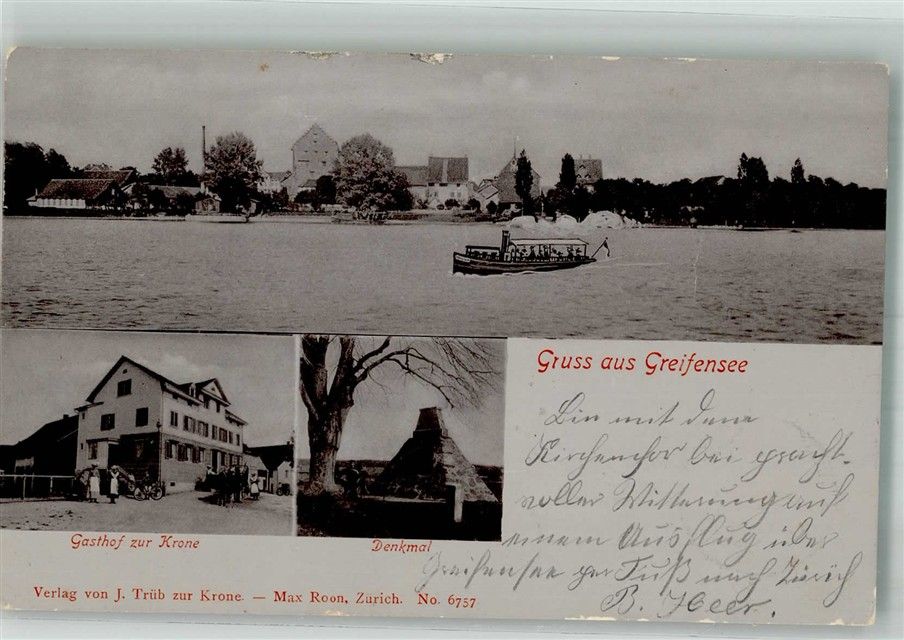 Gruss aus Greifensee
Bin mit dem
Kirchenchor bei pracht-
voller Witterung auf
einem Ausflug über
Greifensee per Fuß nach Zürich
B. Heer.
Gasthof zur Krone
Denkmal
Verlag von J. Trüb zur Krone. — Max Roon, Zurich. No. 6757